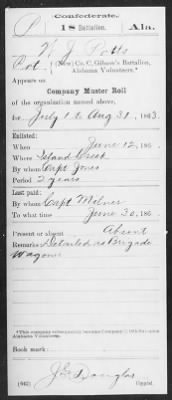 Confederate.
P 18 Battalion, Ala.
W. J. Potts
Pvt., (New) Co. C, Gibson's Battalion,
Alabama Volunteers.*
Appears on
Company Muster Roll
of the organization named above,
for July 1 to Aug 31, 1863.
Enlisted:
When June 12, 186
Where Island Creek
By whom Capt Jones
Period 2 years
Last paid:
By whom Capt Milner
To what time June 30, 186
Present or absent Absent
Remarks: Detailed as Brigade
Wagoner
*This company subsequently became Company
Alabama Volunteers.
Book mark:
J E Douglas
(642) Copyist.